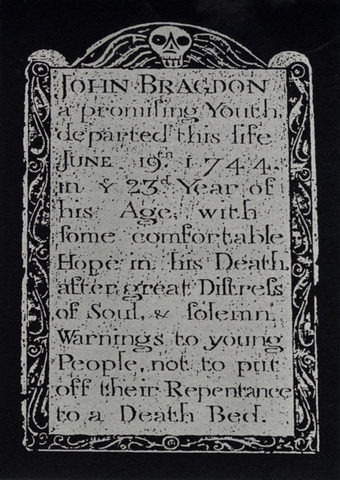 JOHN BRAGDON
a promiſing Youth
departed this life
JUNE 19th 1744.
in Ye 23d Year of
his Age, with
ſome comfortable
Hope in his Death,
after great Diſtreſs
of Soul, & ſolemn
Warnings to young
People, not to put
off their Repentance
to a Death Bed.